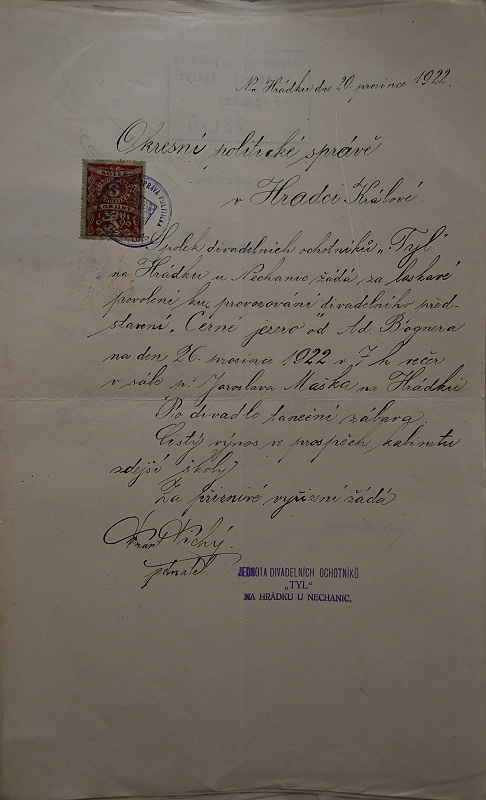 Na Hrádku dne 20. prosince 1922.
Okresní politické správě
v Hradci Králové
Spolek divadelních ochotníků „Tyl"
na Hrádku u Nechanic žádá za laskavé
povolení ku provozování divadelního před-
stavení „Černé jezero" od Ad. Bognera
na den 26. prosince 1922 v 7 h večer
v sále p. Jaroslava Maška na Hrádku
Po divadle taneční zábava.
Čistý výnos ve prospěch kabinetu
zdejší školy
Za příznivé vyřízení žádá
Tichý
jednatel.
JEDNOTA DIVADELNÍCH OCHOTNÍKŮ
„TYL"
NA HRÁDKU U NECHANIC.